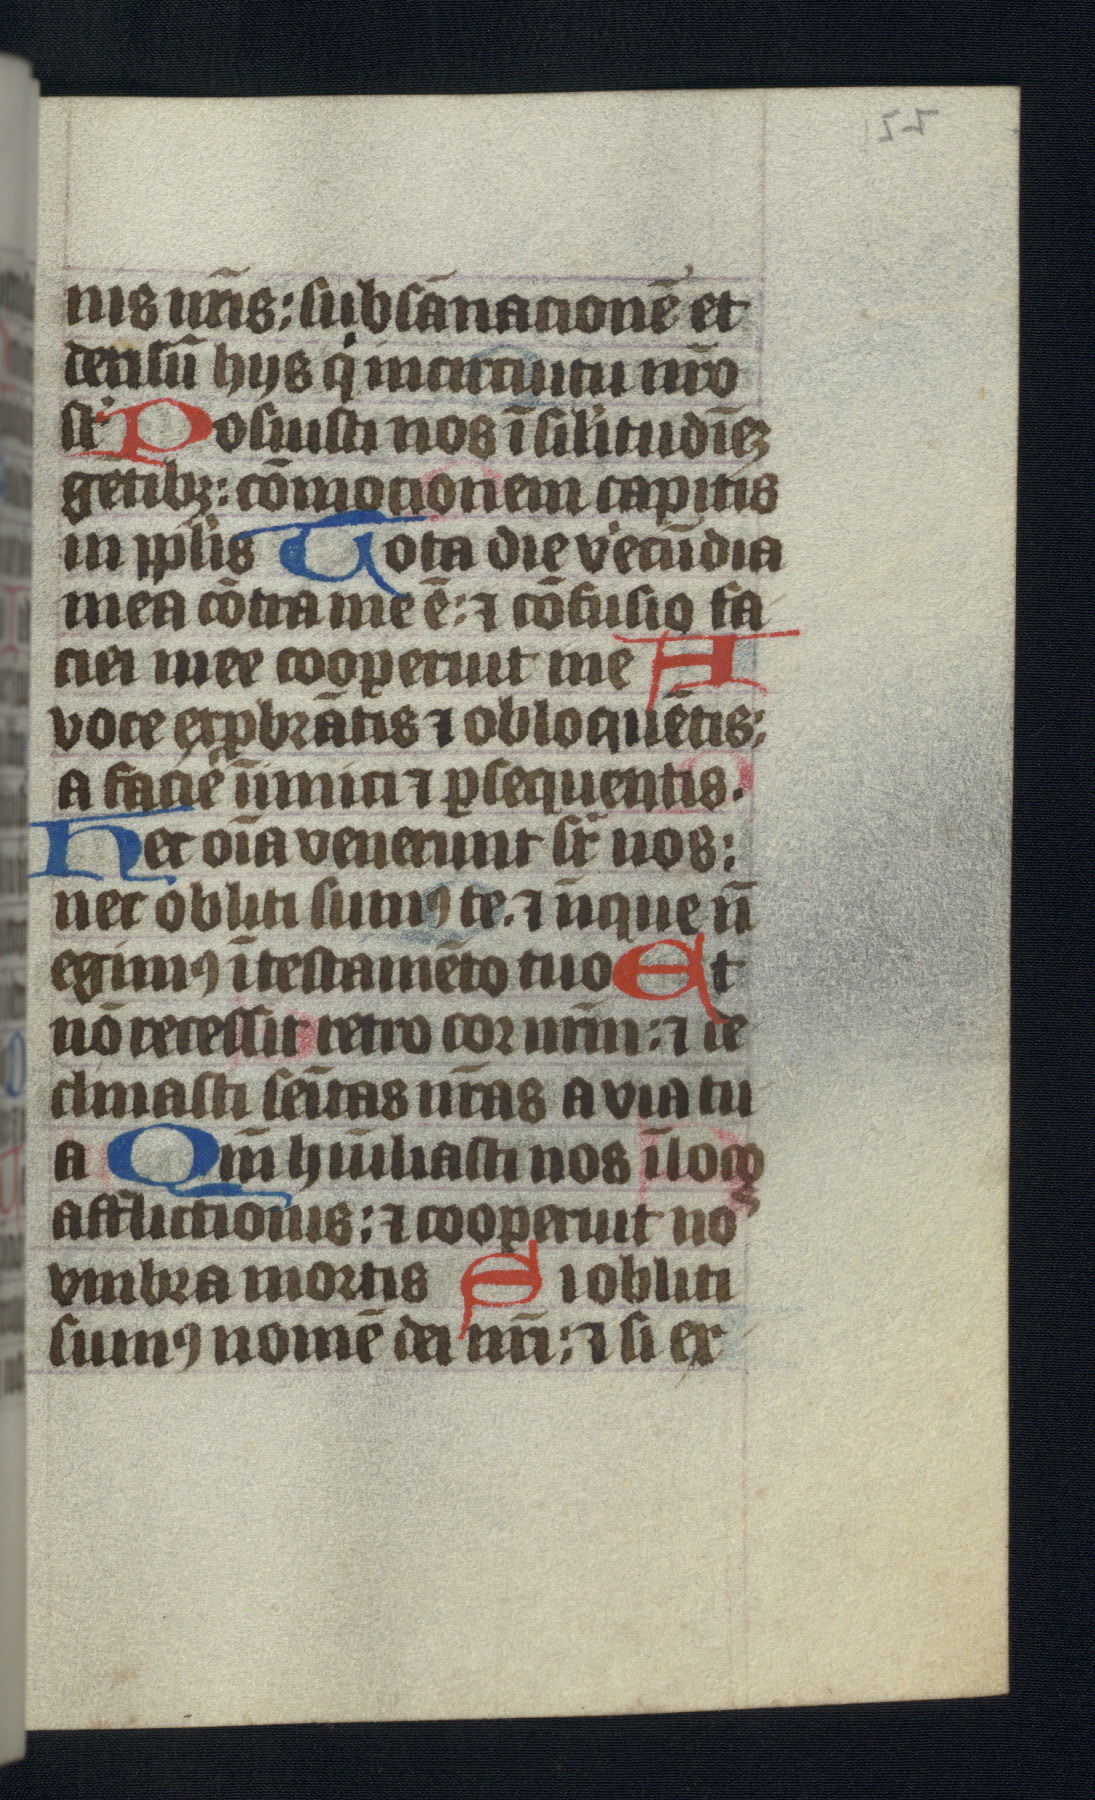 77
nis nr̄is: subsānacionē et
derisū hys q̇ in circuitu nr̄o
st̉ Posuisti nos ī sīlitudīeꝫ
gētibꝫ: cōmocionem capitis
in ppl̄is Tota die v̉ecūdia
mea cōtra me ē: ⁊ cōfusio fa
ciei mee cooperuit me A
voce exꝓbrātis ⁊ obloquētis:
a facie īnimici ⁊ ꝑsequentis.
Hec oīa venerunt sr̄ nos:
nec obliti sumꝰ te. ⁊ īnique n̄
egimꝰ ī testamēto tuo Et
nō recessit retro cor nr̄m: ⁊ de
clinasti semītas nr̄as a via tu
a Qm̄ humiliasti nos ī loco
afflictionis: ⁊ cooperuit noꝰ
vmbra mortis Si obliti
sumꝰ nomē dei nr̄i: ⁊ si ex